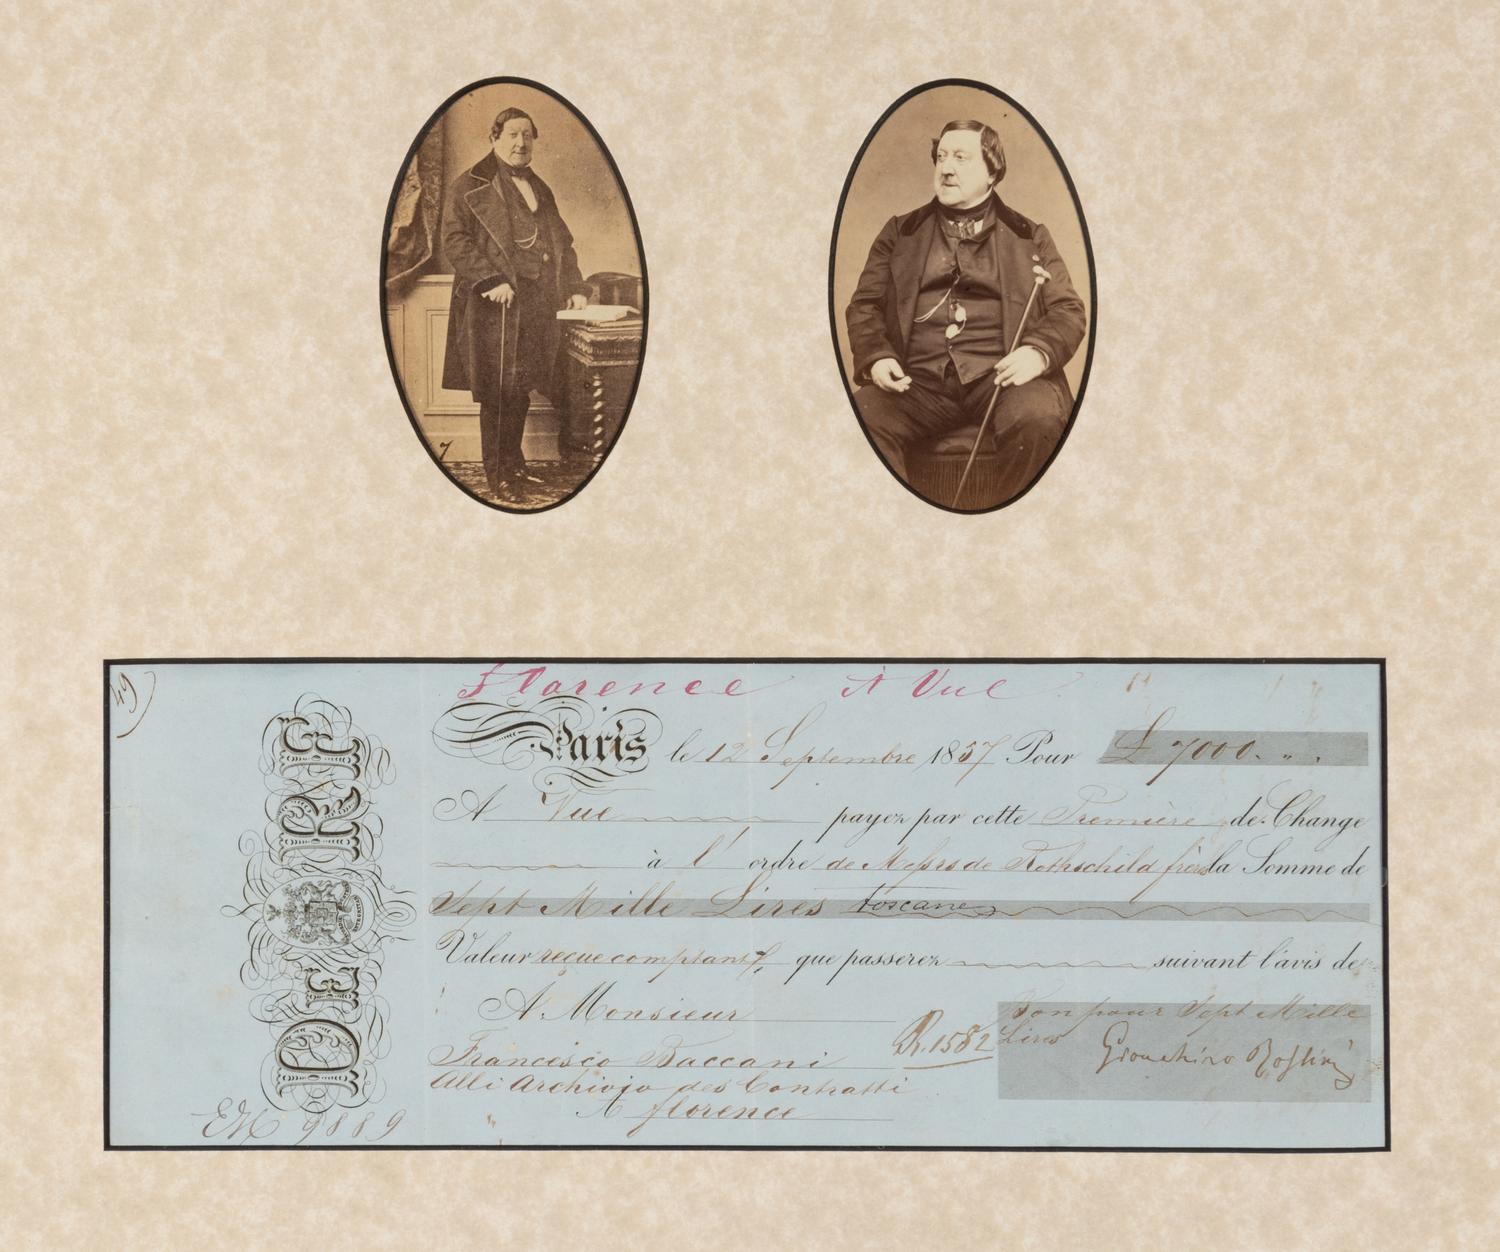 7
49
Florence À Vue
Paris le 12 Septembre 1857 Pour £ 7000. " .
A Vue payez par cette Première de Change
à l' ordre de Messrs de Rothschild frères la Somme de
Sept Mille Lires toscane
Valeur reçue comptant, que passerez suivant l'avis de
A Monsieur
Bon pour Sept Mille
Lires
R. 1582
Gioachino Rossini
Francesco Baccani
Alli Archivio des Contratti
A florence
9889